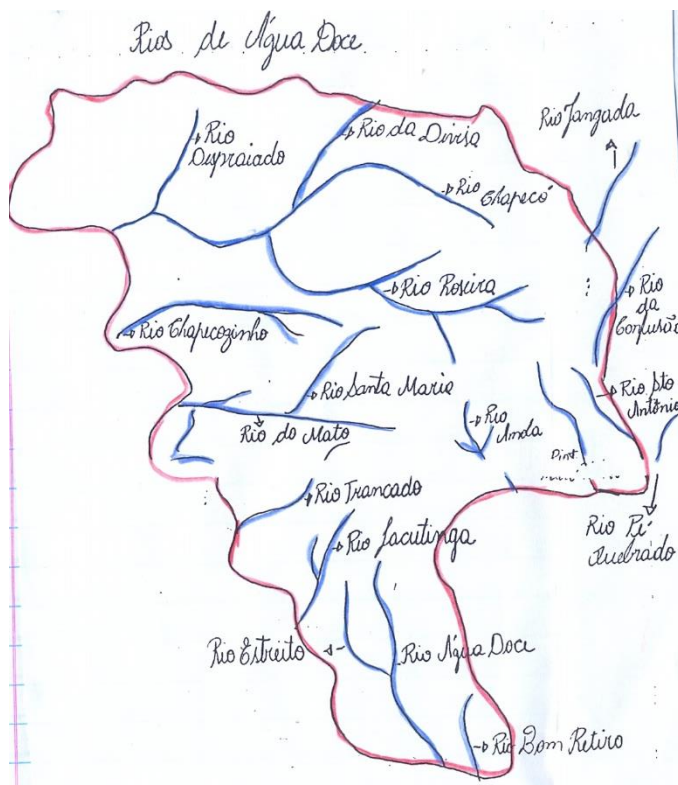 Rios de Água Doce
Rio Jangada
Rio
Despraiado
Rio da Divisa
Rio
Chapecó
Rio Roseira
Rio
da
Confusão
Rio Chapecozinho
Rio Santa Maria
Rio Sto
Antônio
Rio do Mato
Rio
Anda
Dist.
Rio Trancado
Rio Pé
Quebrado
Rio Jacutinga
Rio Estreito
Rio Água Doce
Rio Bom Retiro